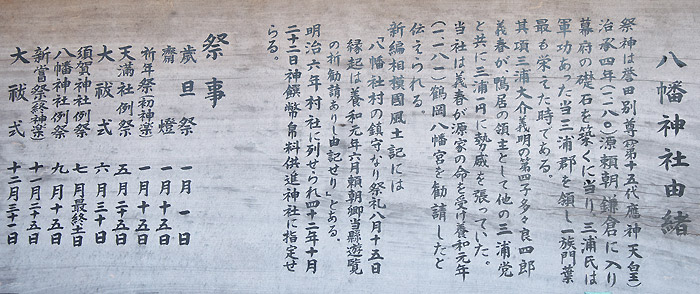 八幡神社由緒
祭神は誉田別尊(第十五代應神天皇)
治承四年(一一八〇)源頼朝、鎌倉に入り
幕府の礎石を築くに当り、三浦氏は
軍功あった当三浦郡を領し一族門葉
最も栄えた時である。
其項三浦大介義明の第四子多々良四郎
義春が鴨居の領主として他の三浦党
と共に三浦一円に勢威を張っていた。
当社は義春が源家の命を受け養和元年
(一一八一)鶴岡八幡宮を勧請したと
伝えられる。
新編相模國風土記には
「八幡社村の鎮守なり祭礼八月十五日
縁起は養和元年六月頼朝卿当縣遊覧
の祈勧請ありし由記せり」とある。
明治六年村社に列せられ四十二年十月
二十二日神饌幣帛料供進神社に指定せ
らる。
祭事
歳旦祭 一月一日
齋燈 一月十五日
祈年祭(初神楽) 一月十五日
天満社例祭 五月二十五日
大祓式 六月三十日
須賀神社例祭 七月最終土日
八幡神社例祭 九月十五日
新嘗祭(終神楽) 十一月二十五日
大祓式 十二月三十一日